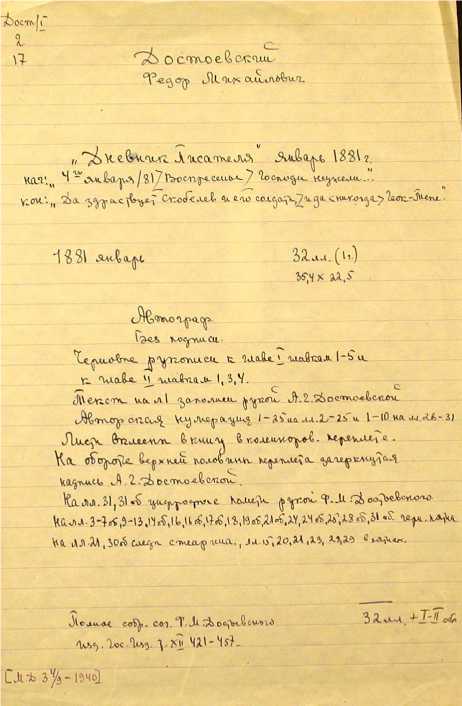 Дост/I
2
17
Достоевский
Федор Михайлович
„Дневник Писателя" январь 1881 г.
нач: „4го января/81> Воскресение> Господи неужели..."
кон: „Да здраствует Скобелев и его солдаты, и да <никогда> Геок-Тепе"
1881 январь 32 лл. (1.)
35,4 × 22,5
Автограф
Без подписи.
Черновые рукописи к главе I главкам 1-5 и
к главе II главкам 1, 3, 4.
Текст на л 1 заполнен рукой А.Г. Достоевской
Авторская нумерация 1-25 на лл. 2-25 и 1-10 на лл. 26-31
Листы вклеены в книгу в коленкоров. переплете.
На обороте верхней половины переплета зачеркнутая
надпись А.Г. Достоевской.
На лл. 31, 31 об цифровые пометы рукой Ф.М. Достоевского
На лл. 3-7 об, 9-13, 14 об, 16, 16 об, 17 об, 18, 19 об, 21 об, 24, 24 об, 25, 28 об, 31 об черн. пятна
на лл. 21, 30 об следы стеарина., лл. 20, 21, 23, 29 в пятнах.
Полное собр. соч. Ф.М. Достоевского 32 лл. + I-II об
изд. Гос. Изд. т. XII 421-457.
[М.Д 3 4/9 - 1940]